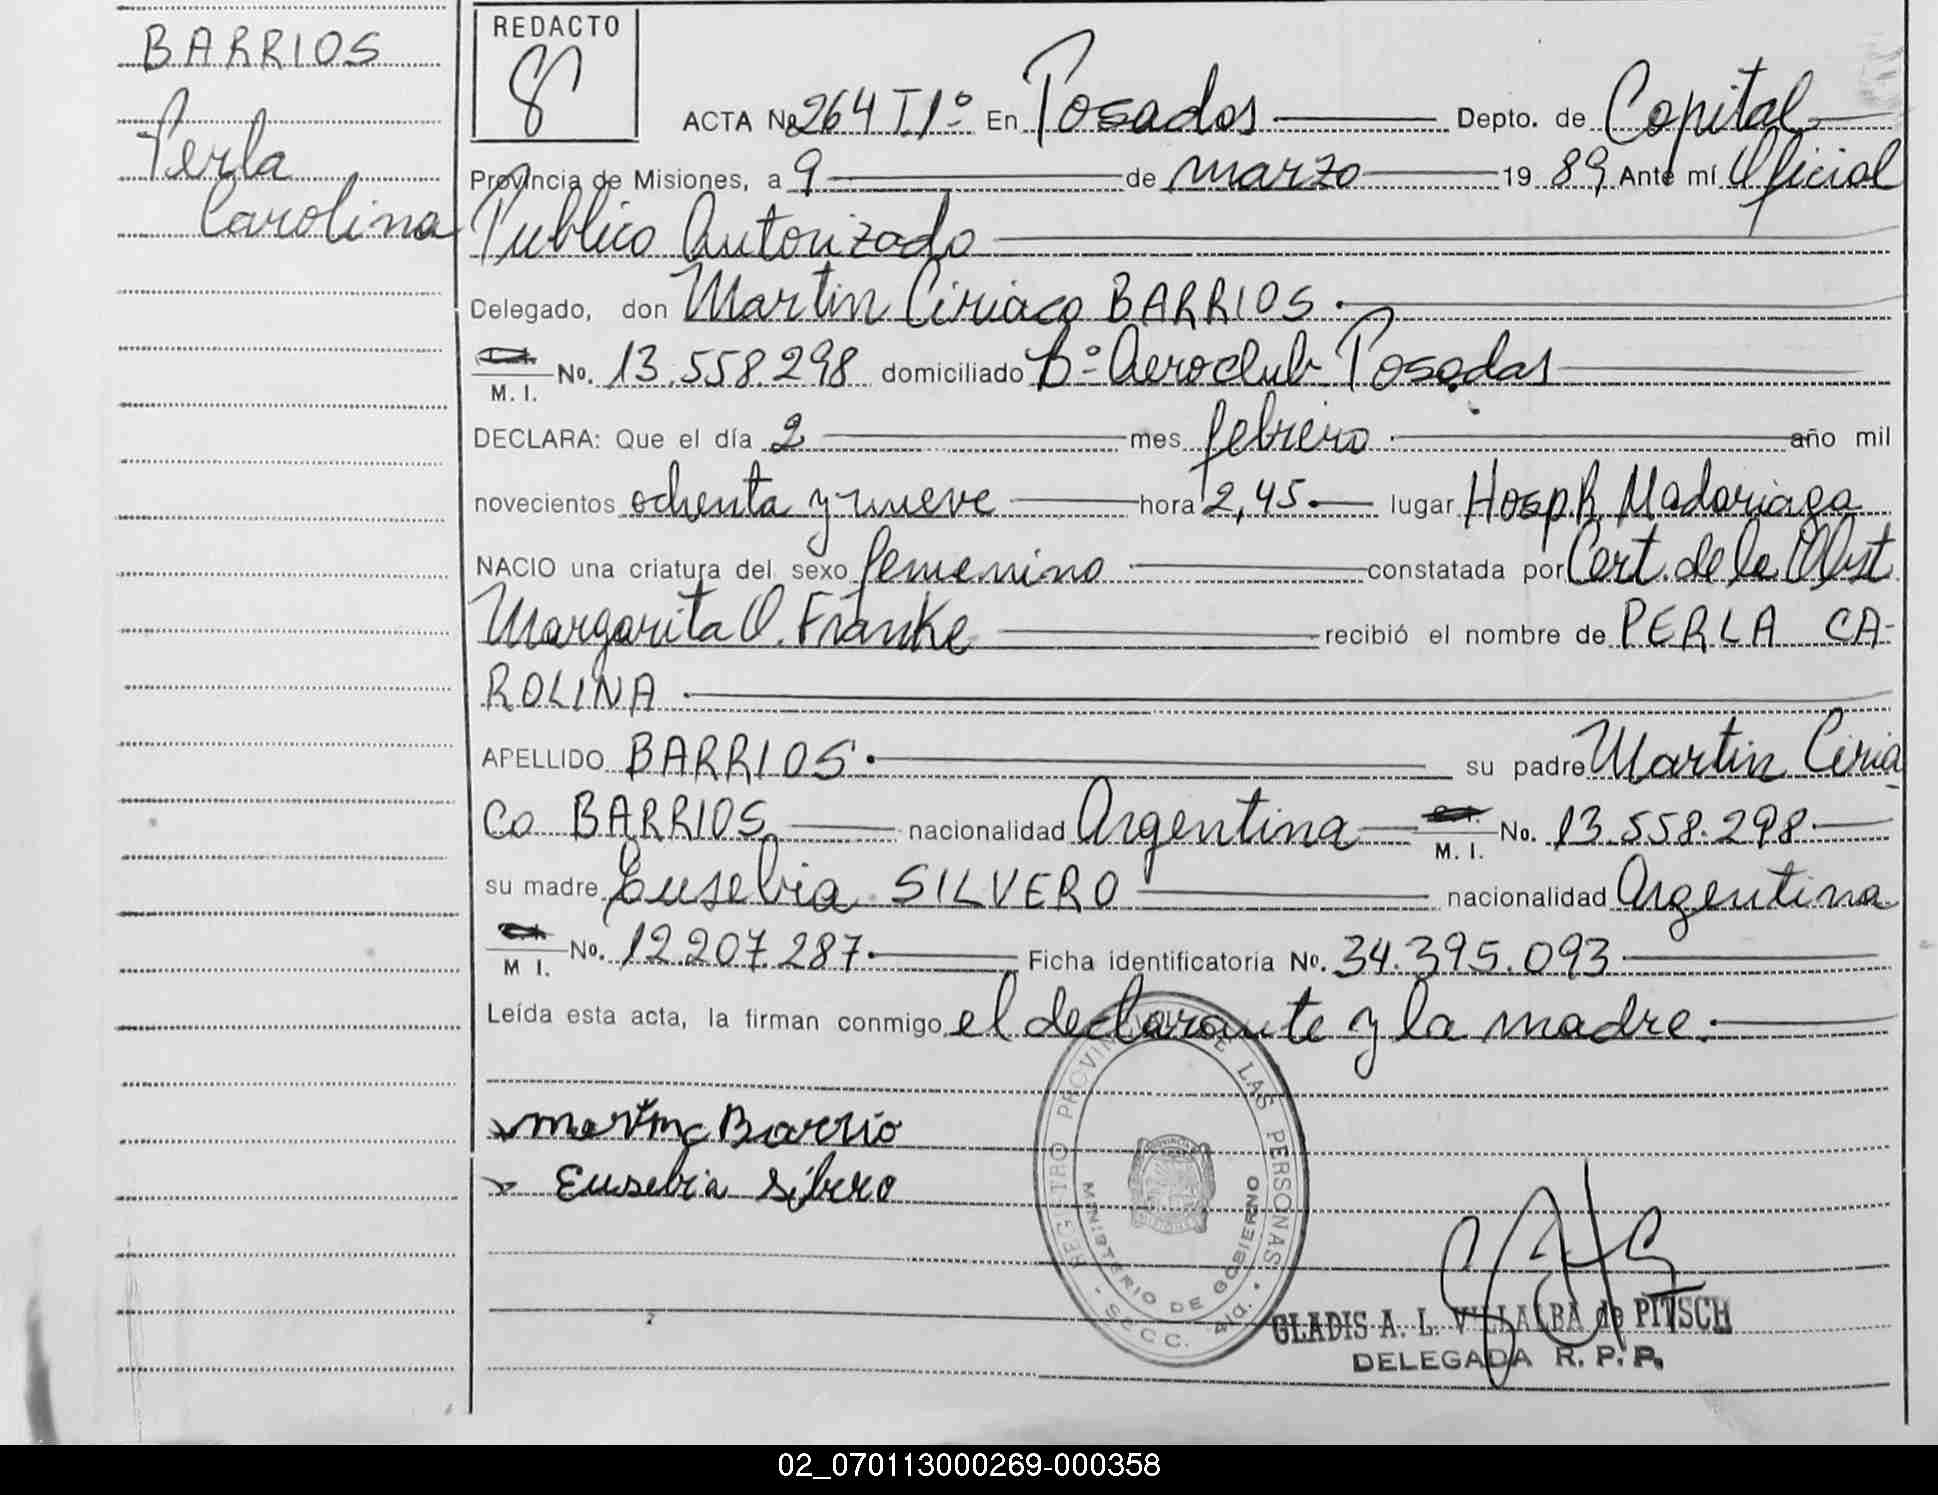 BARRIOS
Perla
Carolina
REDACTO
ACTA Nº 264 T.1º En Posadas Depto. de Capital
Provincia de Misiones, a 9 de marzo 1989 Ante mí Oficial
Publico Autorizado
Delegado, don Martin Ciriaco BARRIOS.
M. I. No. 13.558.298 domiciliado Bº Aeroclub Posadas
DECLARA: Que el día 2 mes febrero año mil
novecientos ochenta y nueve hora 2,45 lugar Hosp. R. Madariaga
NACIO una criatura del sexo femenino constatada por Cert. de la Obst
Margarita O. Franke recibió el nombre de PERLA CA-
ROLINA
APELLIDO BARRIOS. su padre Martin Ciria
co BARRIOS nacionalidad Argentina M. I. No. 13.558.298
su madre Eusebia SILVERO nacionalidad Argentina
M I. No. 12.207.287. Ficha identificatoria No. 34.395.093
Leída esta acta, la firman conmigo el declarante y la madre.
Barrio
Eusebia Silvero
REGISTRO PROVINCIAL DE LAS PERSONAS
MINISTERIO DE GOBIERNO
GLADIS A. L. VILLALBA de PITSCH
DELEGADA R. P. P.
02_070113000269-000358